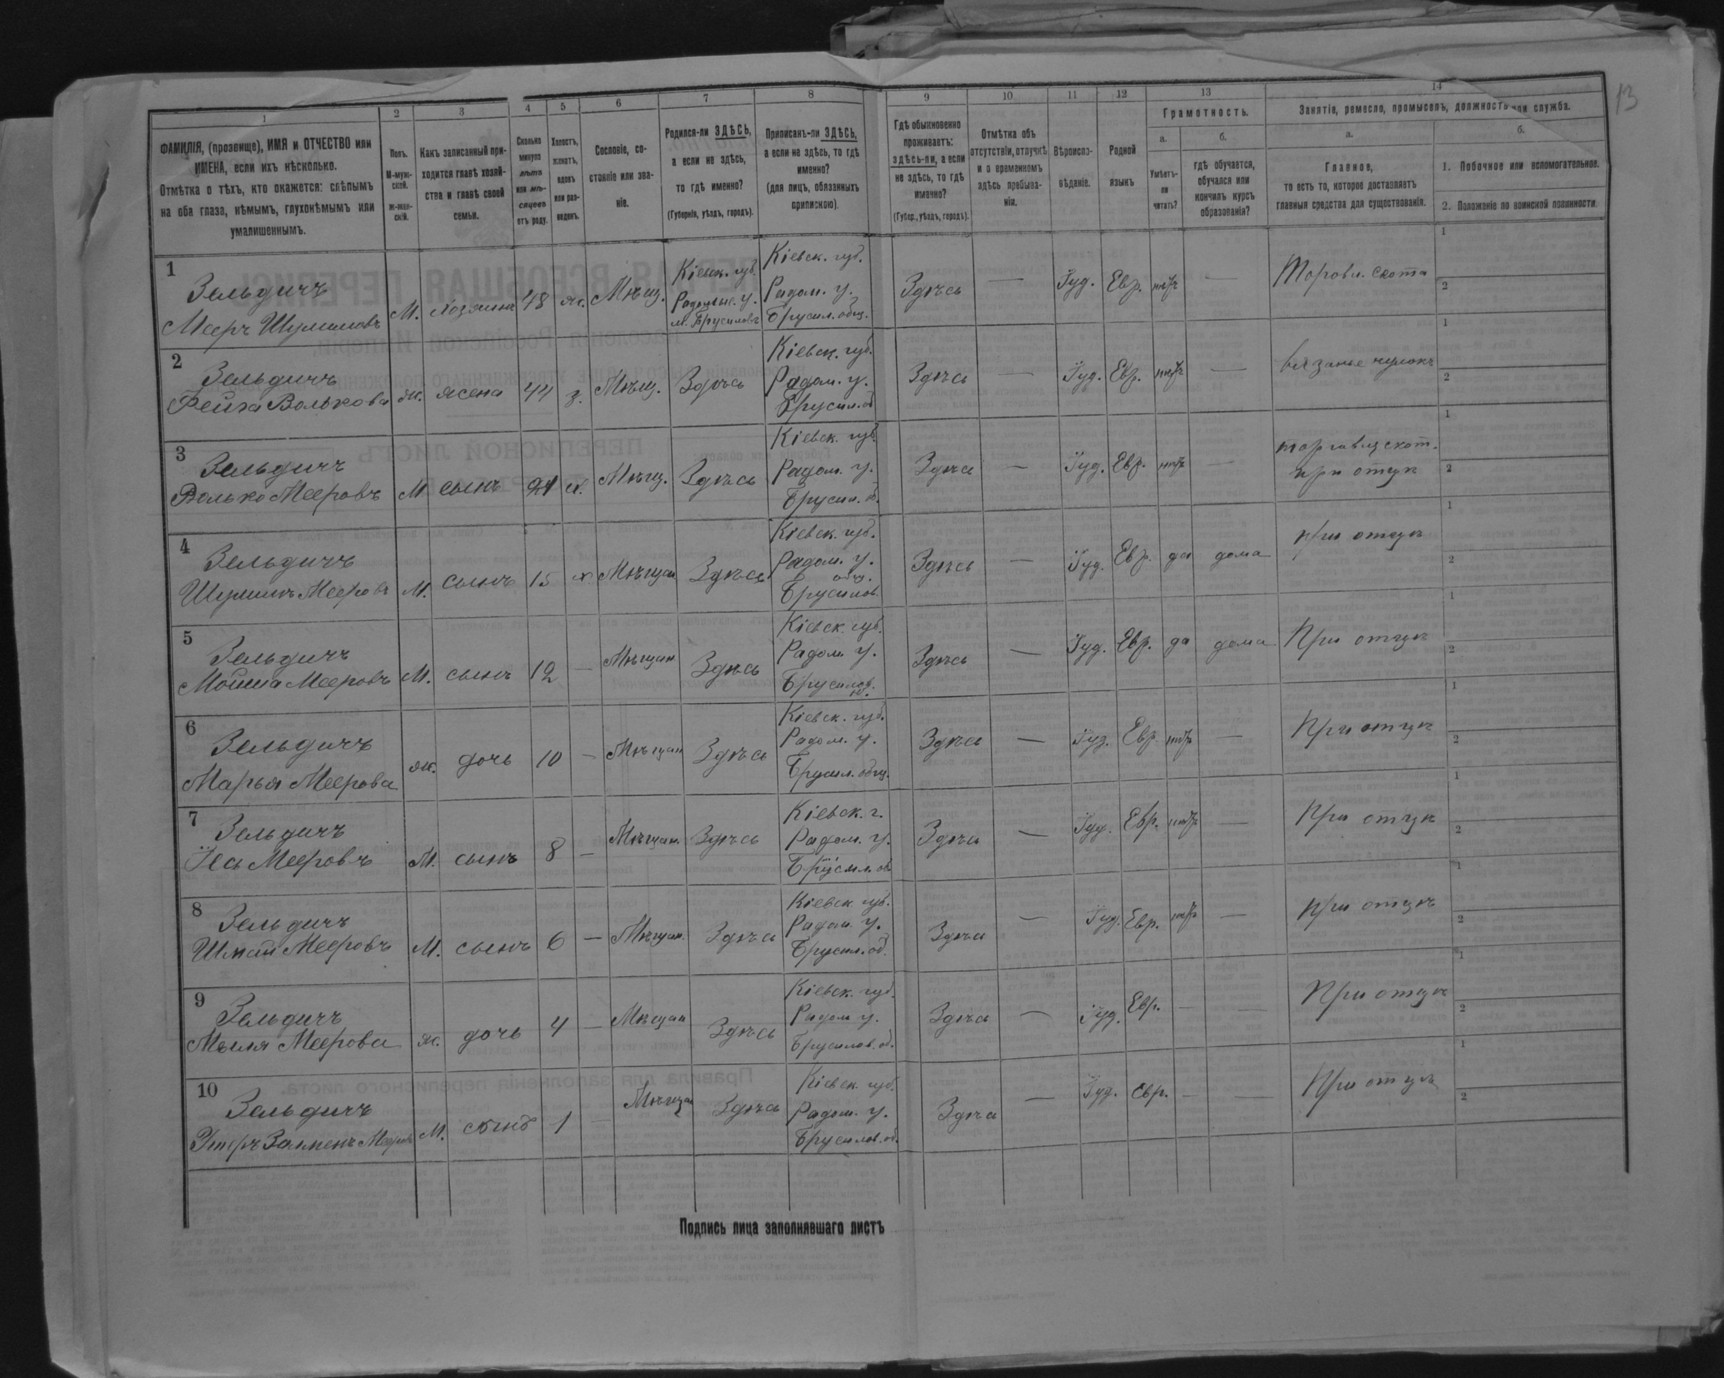 13
1 2 3 4 5 6 7 8 9 10 11 12 13 14
ФАМИЛІЯ, (прозвище), ИМЯ и ОТЧЕСТВО или
ИМЕНА, если ихъ нѣсколько.
Отмѣтка о тѣхъ, кто окажется: слѣпымъ
на оба глаза, нѣмымъ, глухонѣмымъ или
умалишеннымъ.
Полъ.
М-муж-
ской.
ж-жен-
скій.
Какъ записанный при-
ходится главѣ хозяй-
ства и главѣ своей
семьи.
Сколько
минуло
лѣтъ
или мѣ-
сяцевъ
отъ роду.
Холостъ,
женатъ,
вдовъ
или раз-
веденъ.
Сословіе, со-
стояніе или зва-
ніе.
Родился-ли ЗДѢСЬ,
а если не здѣсь,
то гдѣ именно?
(Губернія, уѣздъ, городъ).
Приписанъ-ли ЗДѢСЬ,
а если не здѣсь, то гдѣ
именно?
(для лицъ, обязанныхъ
припискою).
Гдѣ обыкновенно
проживаетъ:
здѣсь-ли, а если
не здѣсь, то гдѣ
именно?
(Губер., уѣздъ, городъ).
Отмѣтка объ
отсутствіи, отлучкѣ
и о временномъ
здѣсь пребыва-
ніи.
Вѣроиспо-
вѣданіе.
Родной
языкъ
Грамотность.
а.
Умѣетъ-
ли
читать?
б.
гдѣ обучается,
обучался или
кончилъ курсъ
образованія?
Занятіе, ремесло, промыселъ, должность или служба.
а.
Главное,
то есть то, которое доставляетъ
главныя средства для существованія.
б.
1. Побочное или вспомогательное.
2. Положеніе по воинской повинности.
1
Зельдичъ
Мееръ Шулимовъ
М. хозяинъ 48 ж. Мѣщ.
Кіевск. губ.
Радомыс. у.
м. Брусиловъ
Кіевск. губ.
Радом. у.
Брусил. общ.
Здѣсь — Іуд. Евр. нѣтъ — Торовл. скота
1
2
2
Зельдичъ
Фейга Волькова
ж. жена 44 з. Мѣщ. Здѣсь
Кіевск. губ.
Радом. у.
Брусил. об
Здѣсь — Іуд. Евр. нѣтъ — вязанье чулокъ
1
2
3
Зельдичъ
Волько Мееровъ
М. сынъ 21 х. Мѣщ. Здѣсь
Кіевск. губ
Радом. у.
Брусил. о.
Здѣсь — Іуд. Евр. нѣтъ —
торгавц скот.
при отцѣ
1
2
4
Зельдичъ
Шулимъ Мееровъ
М. сынъ 15 х Мѣщан Здѣсь
Кіевск. губ.
Радом. у.
общ.
Брусилов
Здѣсь — Іуд. Евр. да дома при отцѣ
1
2
5
Зельдичъ
Мойша Мееровъ
М. сынъ 12 — Мѣщан Здѣсь
Кіевск. губ.
Радом у.
Брусилов.
Здѣсь — Іуд. Евр. да дома При отцѣ
1
2
6
Зельдичъ
Марья Меерова
ж. дочь 10 — Мѣщан Здѣсь
Кіевск. губ.
Радом. у.
Брусил. общ.
Здѣсь — Іуд. Евр. нѣтъ — При отцѣ
1
2
7
Зельдичъ
Іось Мееровъ
М. сынъ 8 — Мѣщан. Здѣсь
Кіевск. г.
Радом. у.
Брусил. об
Здѣсь — Іуд. Евр. нѣтъ — При отцѣ
1
2
8
Зельдичъ
Шмай Мееровъ
М. сынъ 6 — Мѣщан. Здѣсь
Кіевск губ.
Радом у.
Брусил. об.
Здѣсь — Іуд. Евр. нѣтъ — при отцѣ
1
2
9
Зельдичъ
Меерова
ж. дочь 4 — Мѣщан Здѣсь
Кіевск. губ.
Радом у.
Брусилов. об.
Здѣсь — Іуд. Евр. — — При отцѣ
1
2
10
Зельдичъ
Залменъ Мееров
М. сынъ 1 Мѣщан Здѣсь
Кіевск. губ.
Радом. у.
Брусилов. об.
Здѣсь — Іуд. Евр. — — При отцѣ
1
2
Подпись лица заполнявшаго листъ